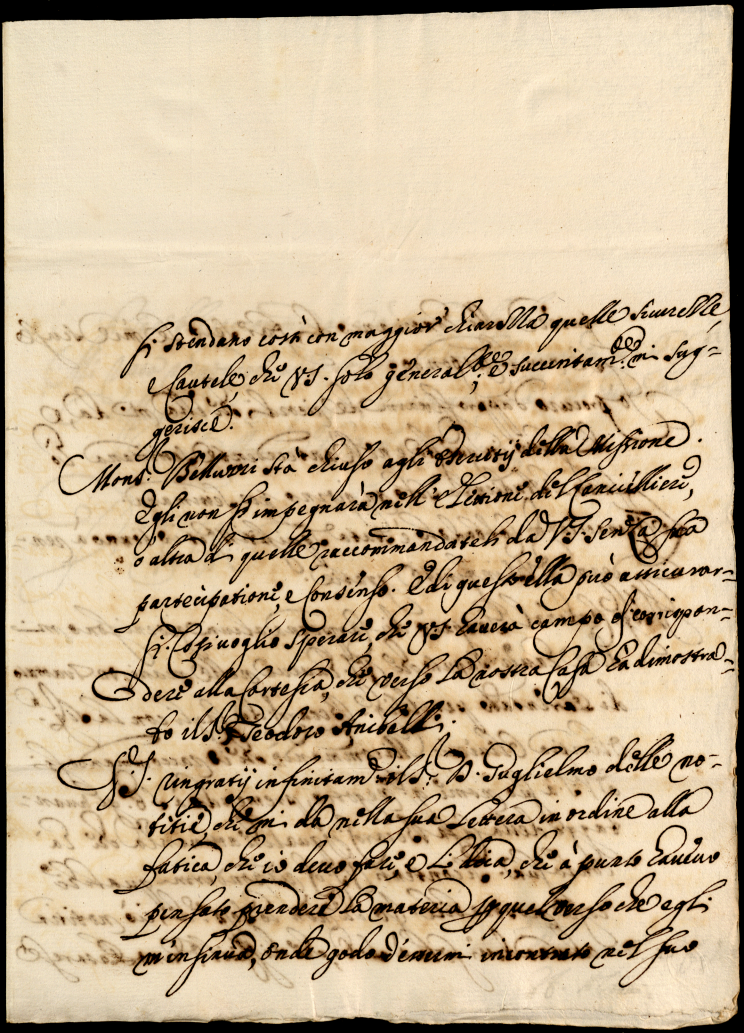 si stendano costì con maggior chiarezza quelle sicurezze,
e Cautele che VS. solo general.te, e succintam.te mi sug=
gerisce.
Mons.r Belluzzi stà chiuso agli esercitij della Missione.
Egli non s'impegnarà nell'Elettione del Cancellieri,
o altra di quelle raccommandateli da VS. senza sua
partecipatione, e Consenso. E di questo ella può assicurar=
si. Così voglio sperare, che VS haverà campo di corrispon=
dere alla Cortesia, che verso la nostra Casa hà dimostra=
to il S.r Teodoro Anibelli.
VS. ringratij infinitam.te il S.r D. Guglielmo delle no=
titie, che mi da nella sua Lettera in ordine alla
fatica, che io devo fare, e L'Idea, che à punto havevo
pensato prendere la materia per quel verso che egli
m'insinua, onde godo d'essermi incontrato nel suo